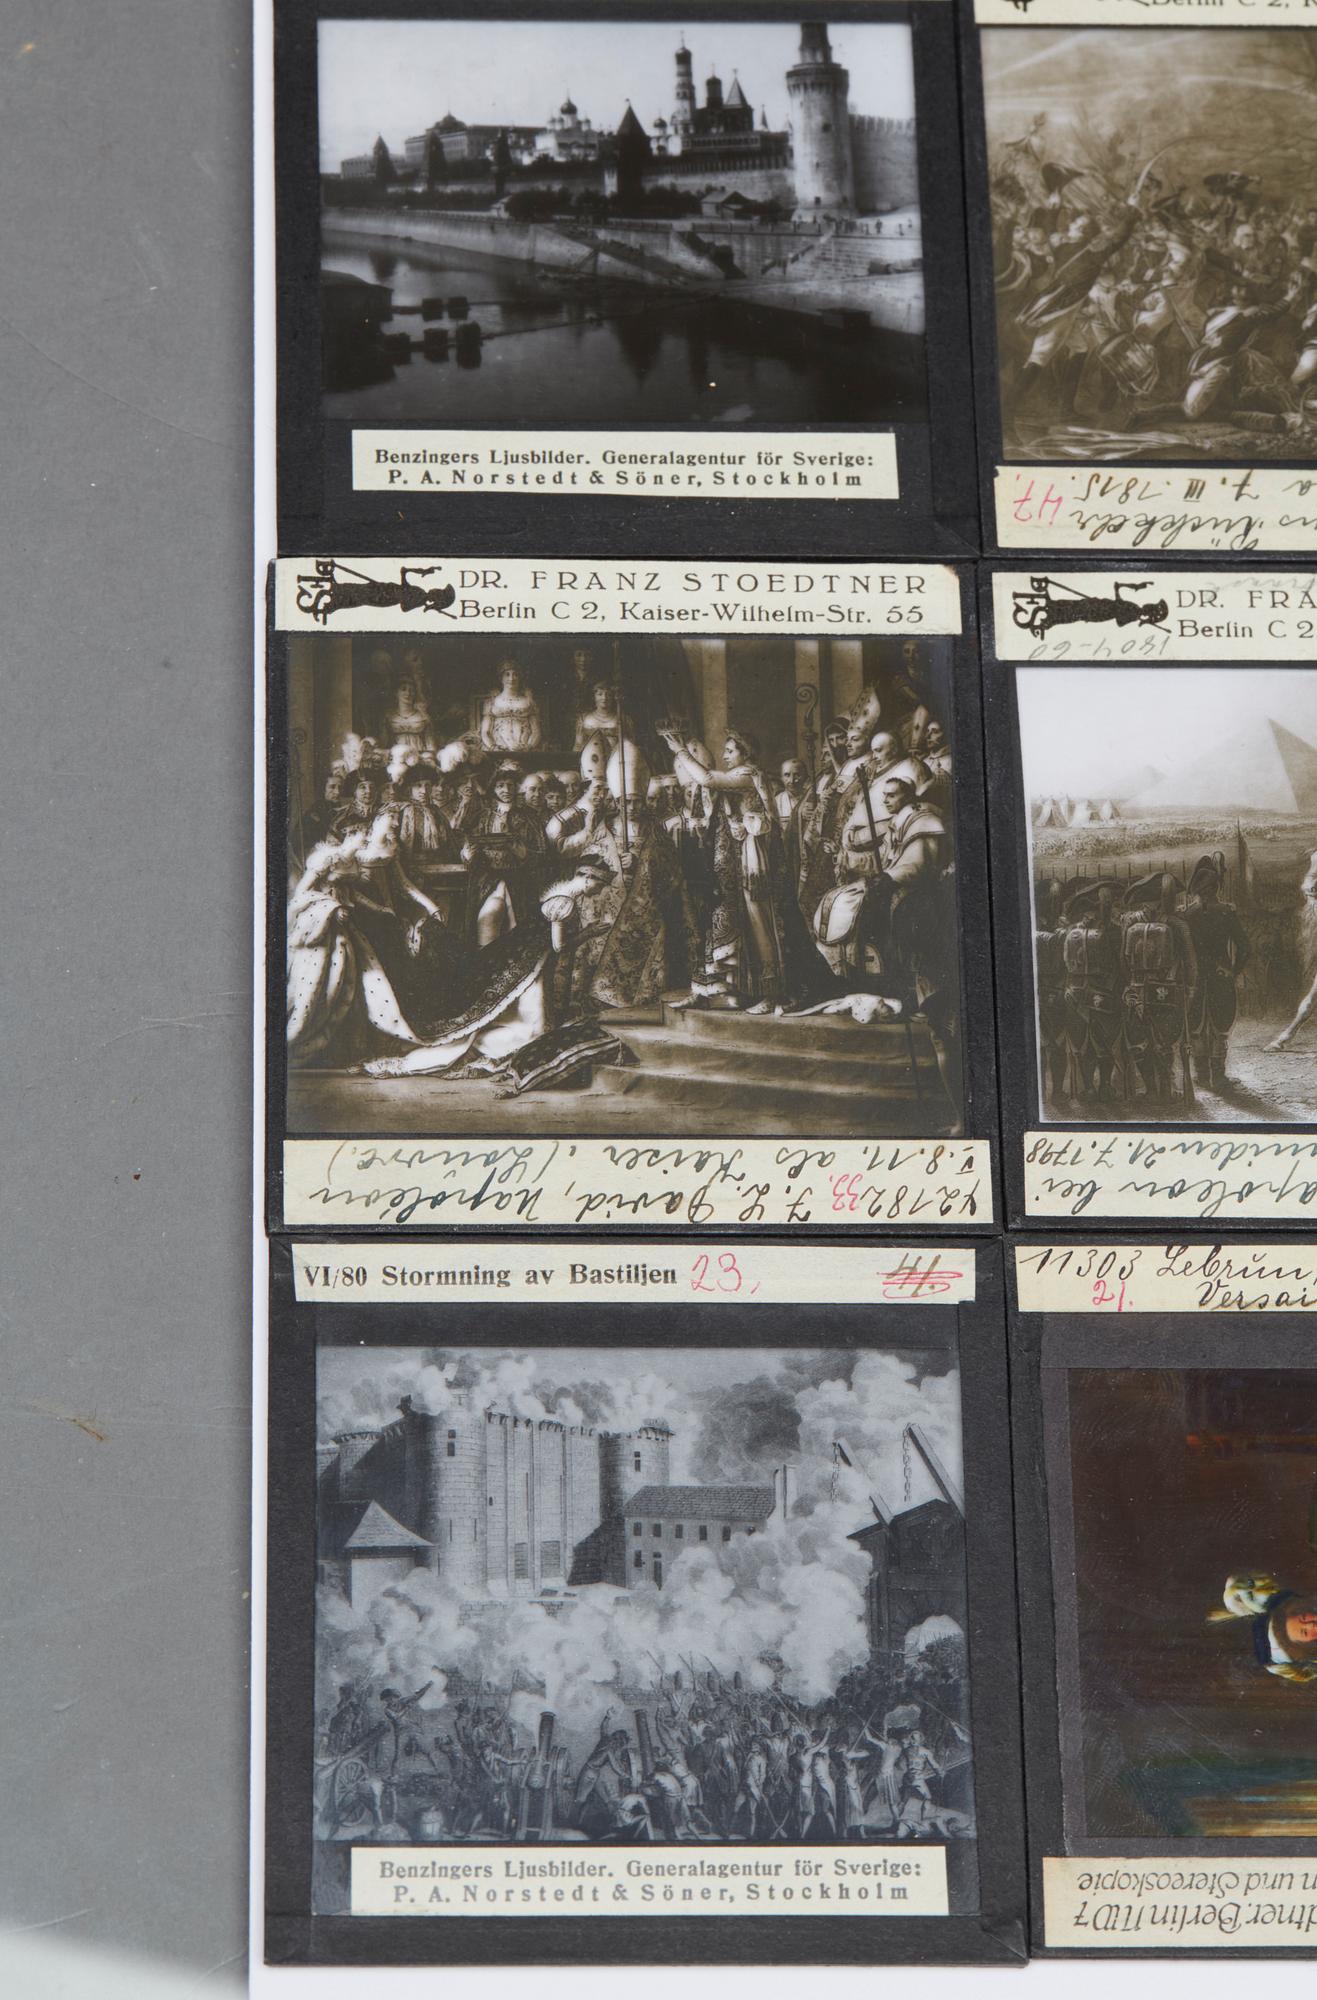 Berlin C 2, K
Benzingers Ljusbilder. Generalagentur för Sverige:
P. A. Norstedt & Söner, Stockholm
47.
a 7. III. 1815.
Rückkehr
DR. FRANZ STOEDTNER
Berlin C 2, Kaiser-Wilhelm-Str. 55
42182 33, J. L. David, Napoléon
v. 8. 11. als Kaiser. (Louvre.)
DR. FRA
Berlin C 2
1804-60
apoleon bei
miden 21. 7. 1798
VI/80 Stormning av Bastiljen 23,
Benzingers Ljusbilder. Generalagentur för Sverige:
P. A. Norstedt & Söner, Stockholm
11303 Lebrun,
21. Versai
dtner. Berlin NW7
n und Stereoskopie